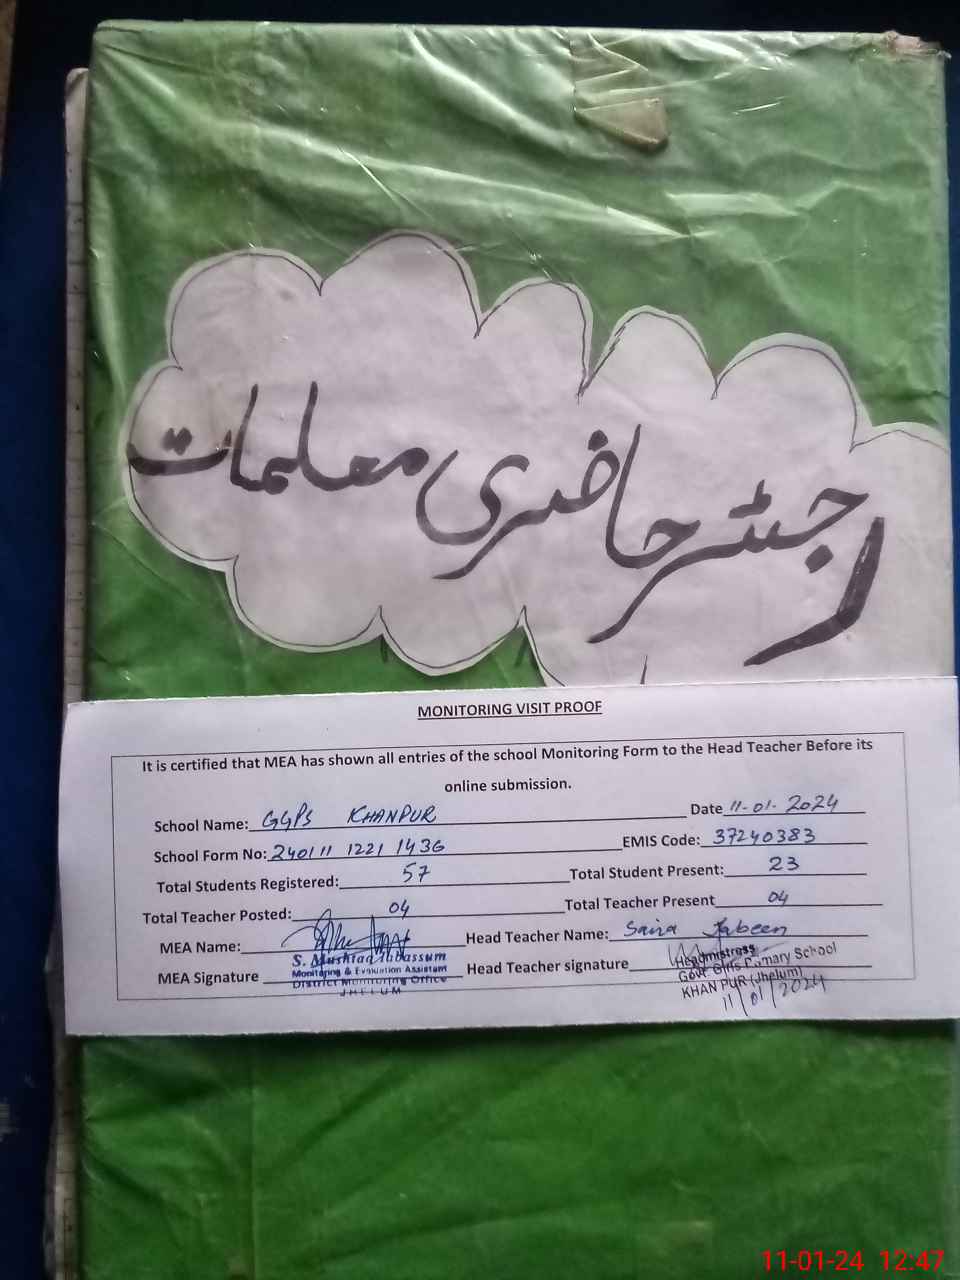 رجسٹر حاضری معلمات
MONITORING VISIT PROOF
It is certified that MEA has shown all entries of the school Monitoring Form to the Head Teacher Before its
online submission.
School Name: GGPS KHANPUR Date 11-01-2024
School Form No: 240111 1221 1436 EMIS Code: 37240383
Total Students Registered: 57 Total Student Present: 23
Total Teacher Posted: 04 Total Teacher Present 04
MEA Name: Head Teacher Name: Saira Jabeen
MEA Signature S. Mushtaq Tabassum Head Teacher signature Headmistress
Monitoring & Evaluation Assistant Govt. Girls Primary School
District Monitoring Office KHAN PUR (Jhelum)
JHELUM 11/01/2024
11-01-24 12:47